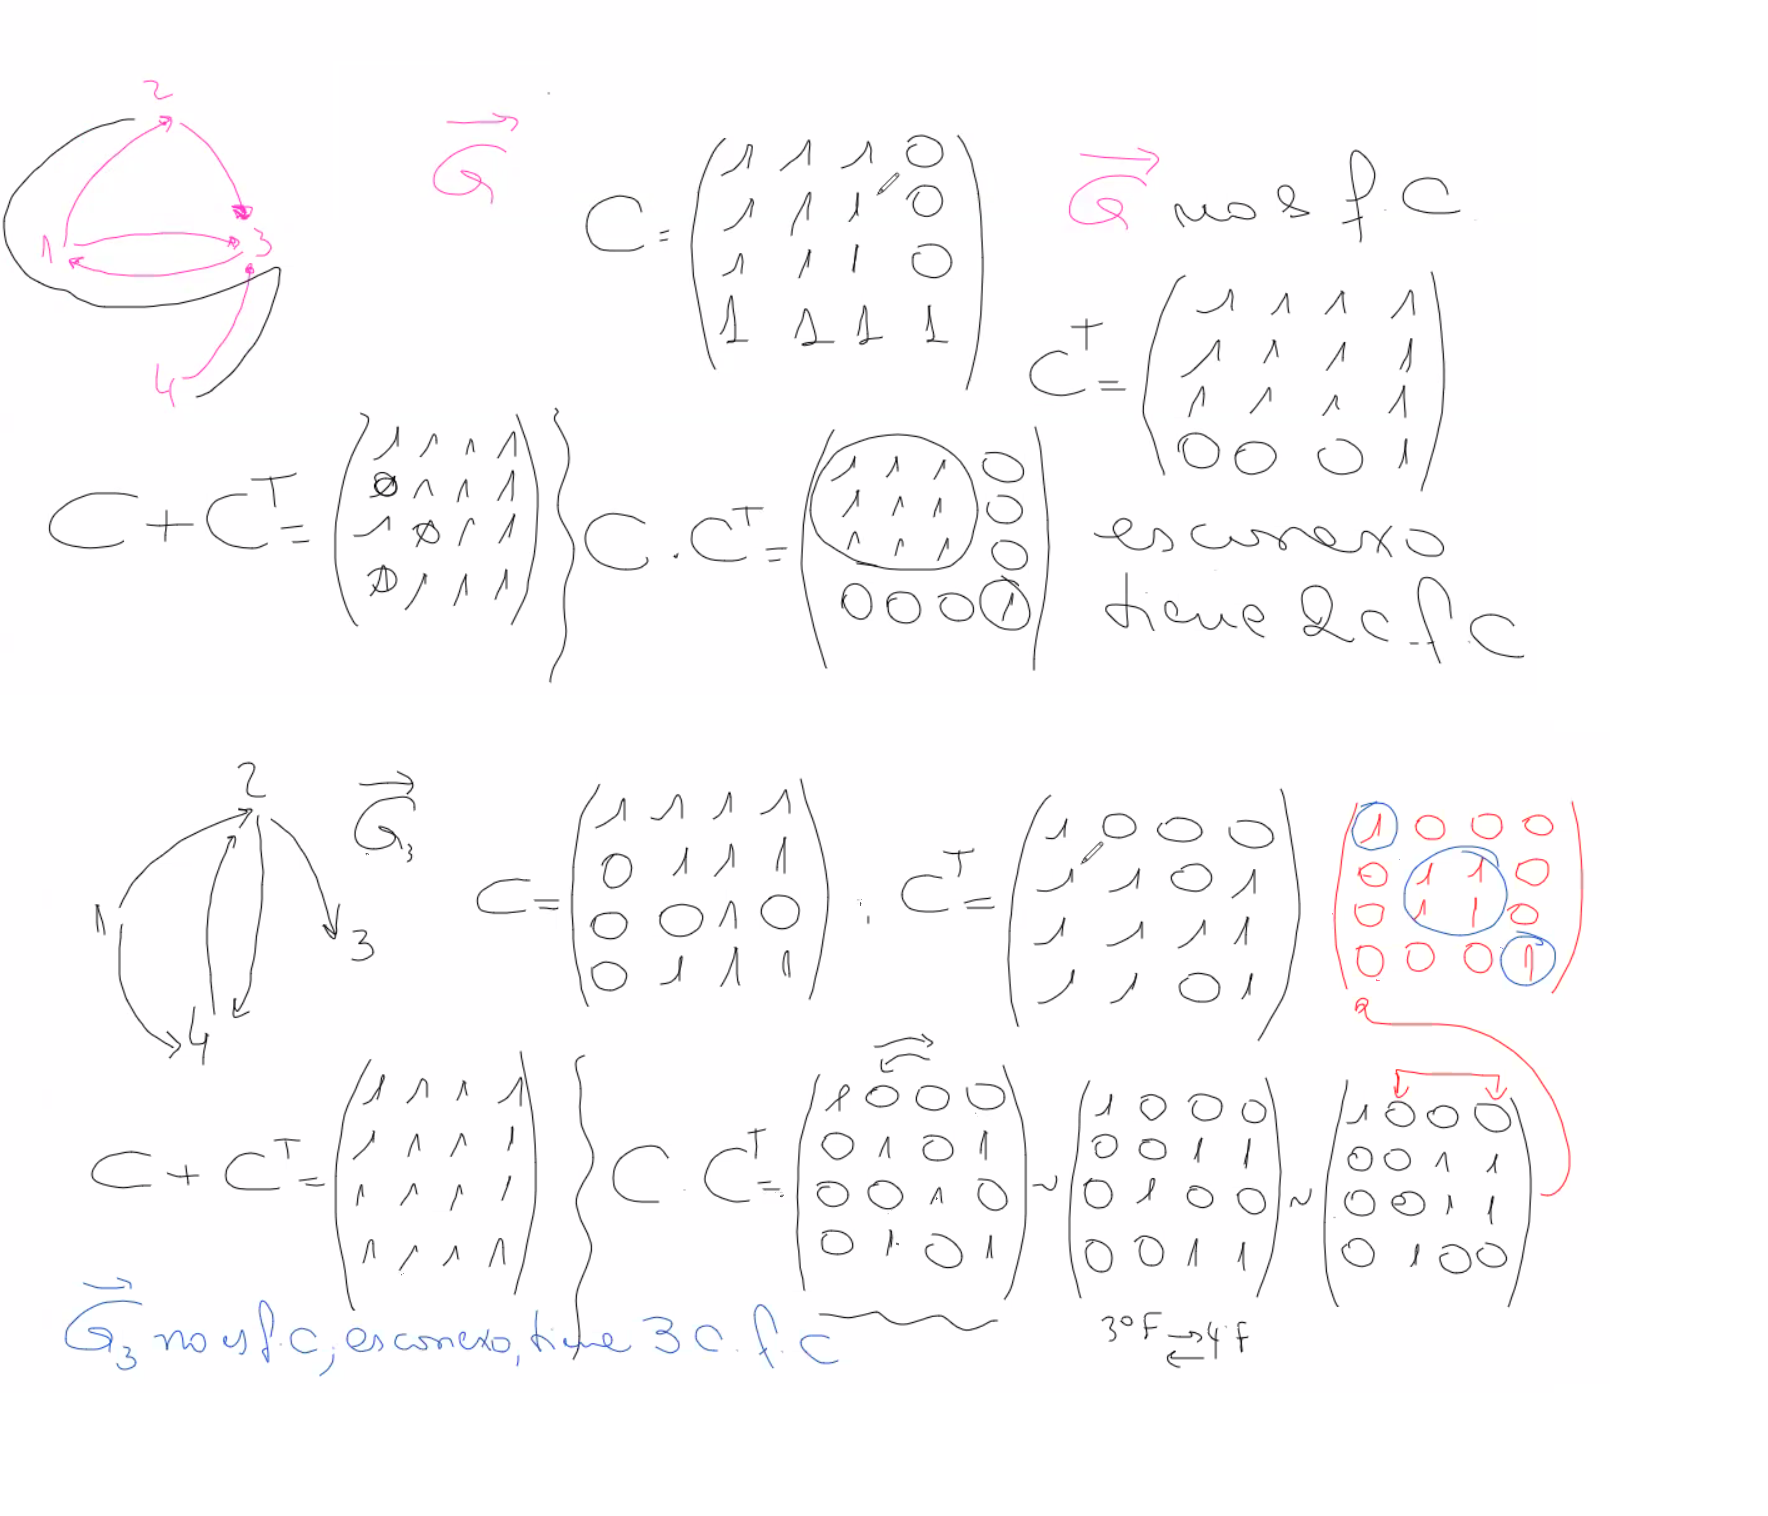 2
1 3
4
G⃗
C = ( 1 1 1 0
1 1 1 0
1 1 1 0
1 1 1 1 )
G⃗ no es f.C.
C^T = ( 1 1 1 1
1 1 1 1
1 1 1 1
0 0 0 1 )
C + C^T = ( 1 1 1 1
1 1 1
1 1 1
1 1 1 )
C . C^T = ( 1 1 1 0
1 1 1 0
1 1 1 0
0 0 0 1 )
es conexo
tiene 2 c.f.C
2
1 3
4
G⃗3
C = ( 1 1 1 1
0 1 1 1
0 0 1 0
0 1 1 1 )
; C^T = ( 1 0 0 0
1 1 0 1
1 1 1 1
1 1 0 1 )
( 1 0 0 0
0 1 1 0
0 1 1 0
0 0 0 1 )
C + C^T = ( 1 1 1 1
1 1 1 1
1 1 1 1
1 1 1 1 )
C . C^T = ( 1 0 0 0
0 1 0 1
0 0 1 0
0 1 0 1 )
~ ( 1 0 0 0
0 0 1 1
0 1 0 0
0 0 1 1 )
~ ( 1 0 0 0
0 0 1 1
0 0 1 1
0 1 0 0 )
3º F ⇄ 4 F
G⃗3 no es f.C, es conexo, tiene 3 C.f.C